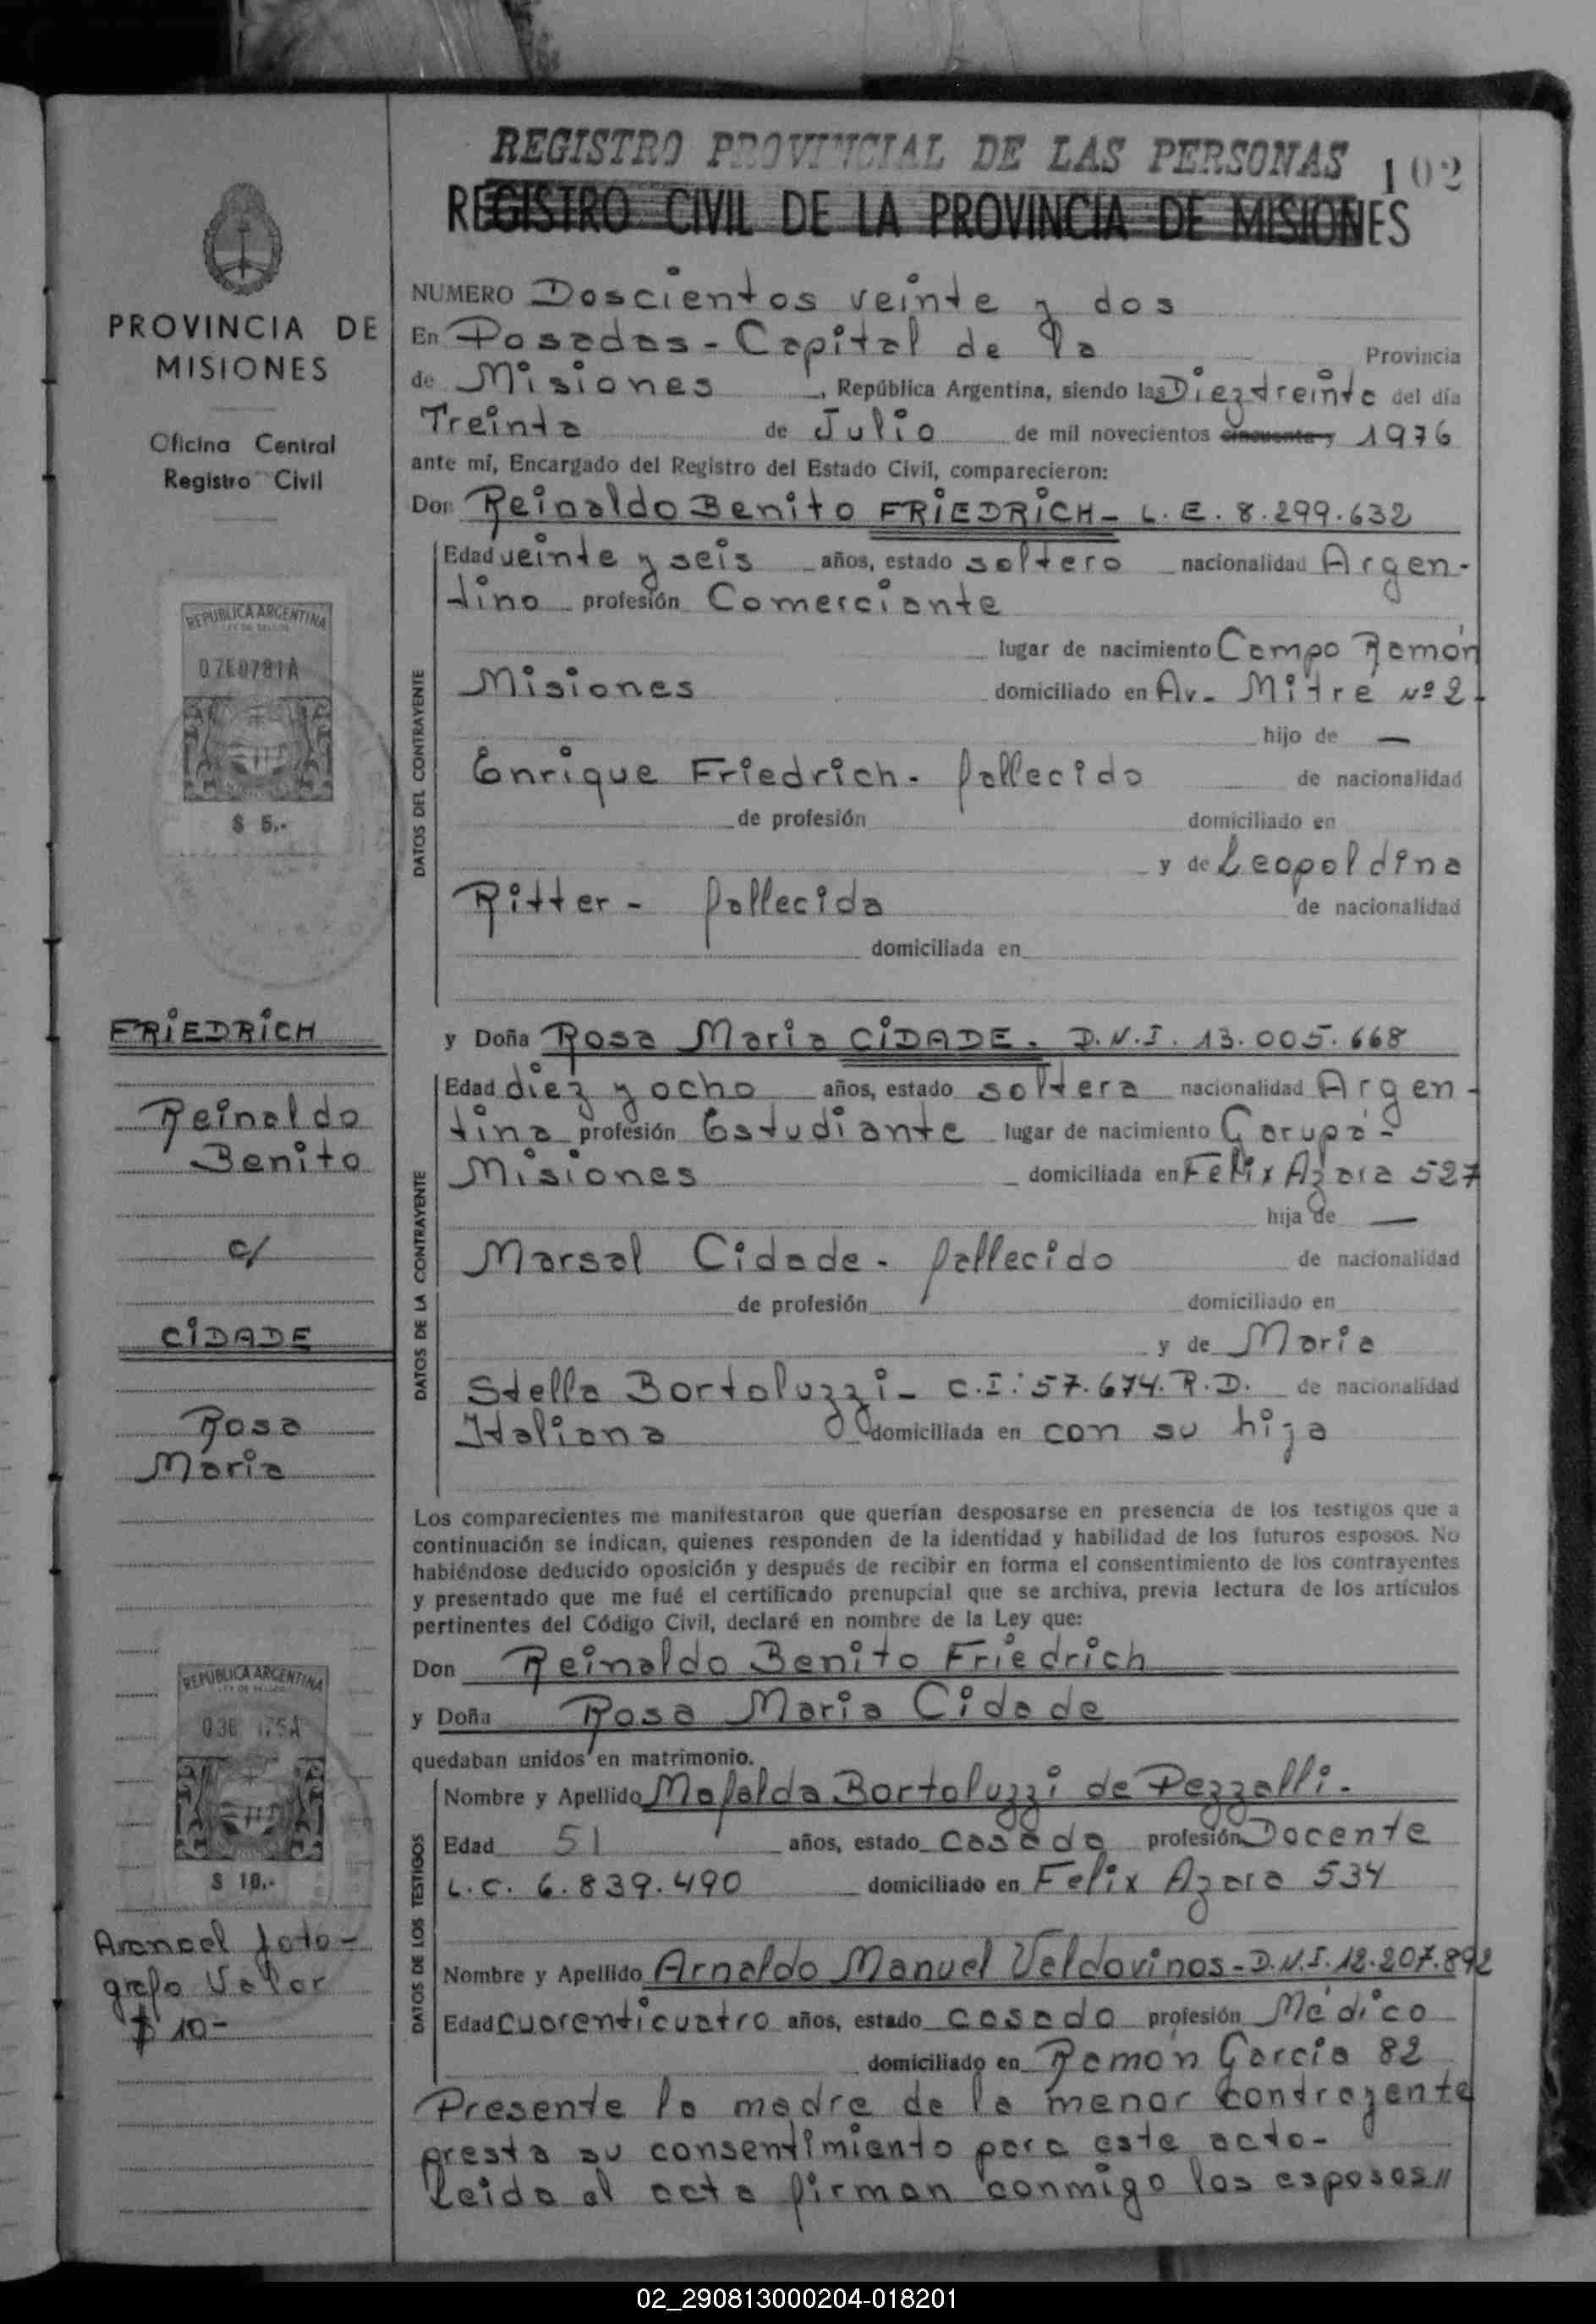 REGISTRO PROVINCIAL DE LAS PERSONAS 102
REGISTRO CIVIL DE LA PROVINCIA DE MISIONES
PROVINCIA DE
MISIONES
Oficina Central
Registro Civil
REPUBLICA ARGENTINA
LEY DE SELLOS
$ 5.-
FRIEDRICH
Reinaldo
Benito
c/
CIDADE
Rosa
Maria
REPUBLICA ARGENTINA
LEY DE SELLOS
$ 10.-
Arancel foto-
grafo Valor
$ 10-
NUMERO Doscientos veinte y dos
En Posadas - Capital de la Provincia
de Misiones, República Argentina, siendo las Diez treinta del día
Treinta de Julio de mil novecientos cincuenta y 1976
ante mí, Encargado del Registro del Estado Civil, comparecieron:
Don Reinaldo Benito FRIEDRICH - L.E. 8.299.632
DATOS DEL CONTRAYENTE
Edad veinte y seis años, estado soltero nacionalidad Argen-
tino profesión Comerciante
lugar de nacimiento Campo Ramón
Misiones domiciliado en Av. Mitre Nº 2-
hijo de —
Enrique Friedrich - fallecido de nacionalidad
de profesión domiciliado en
y de Leopoldina
Ritter - fallecida de nacionalidad
domiciliada en
y Doña Rosa Maria CIDADE - D.N.I. 13.005.668
DATOS DE LA CONTRAYENTE
Edad diez y ocho años, estado soltera nacionalidad Argen-
tina profesión Estudiante lugar de nacimiento Garupá-
Misiones domiciliada en Felix Azara 527
hija de —
Marsal Cidade - fallecido de nacionalidad
de profesión domiciliado en
y de Maria
Stella Bortoluzzi - C.I: 57.674. R.D. de nacionalidad
Italiana domiciliada en con su hija
Los comparecientes me manifestaron que querían desposarse en presencia de los testigos que a
continuación se indican, quienes responden de la identidad y habilidad de los futuros esposos. No
habiéndose deducido oposición y después de recibir en forma el consentimiento de los contrayentes
y presentado que me fué el certificado prenupcial que se archiva, previa lectura de los artículos
pertinentes del Código Civil, declaré en nombre de la Ley que:
Don Reinaldo Benito Friedrich
y Doña Rosa Maria Cidade
quedaban unidos en matrimonio.
DATOS DE LOS TESTIGOS
Nombre y Apellido Mafalda Bortoluzzi de Pezzelli-
Edad 51 años, estado casada profesión Docente
L.C. 6.839.490 domiciliado en Felix Azara 534
Nombre y Apellido Arnaldo Manuel Valdovinos - D.N.I. 12.207.892
Edad cuarenticuatro años, estado casado profesión Médico
domiciliado en Ramón Garcia 82
Presente la madre de la menor contrayente
presta su consentimiento para este acto-
Leida el acta firman conmigo los esposos//
02_290813000204-018201